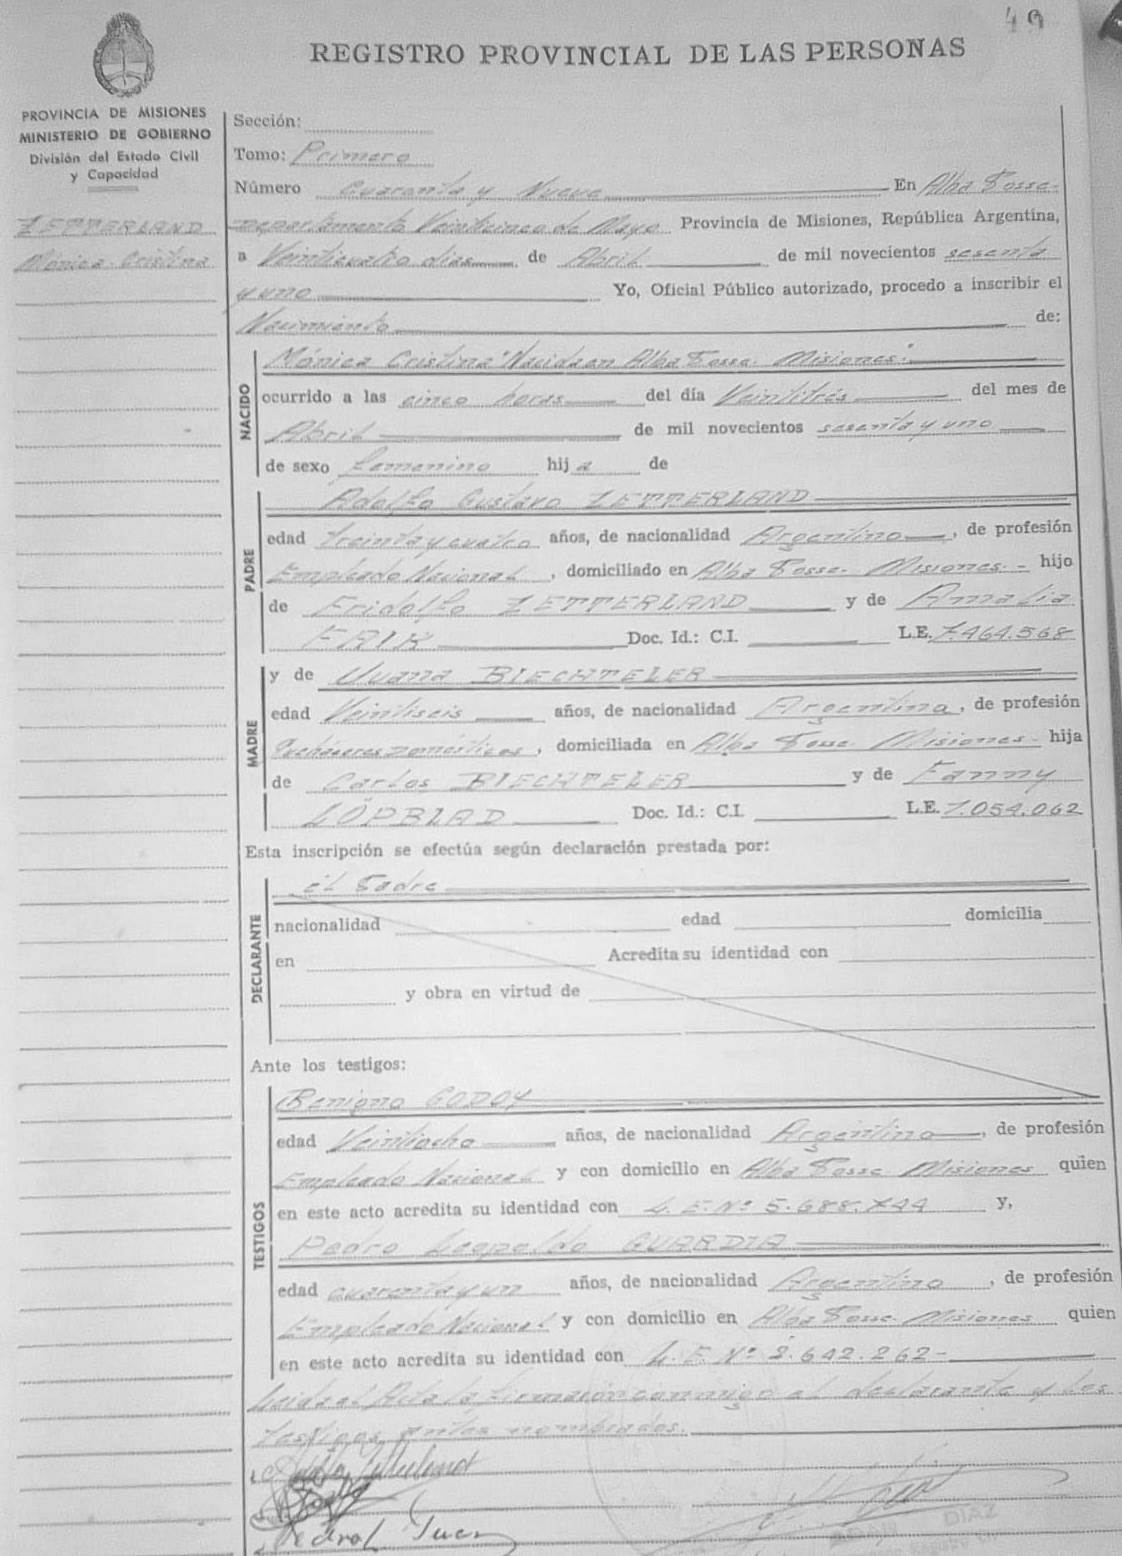 49
REGISTRO PROVINCIAL DE LAS PERSONAS
PROVINCIA DE MISIONES
MINISTERIO DE GOBIERNO
División del Estado Civil
y Capacidad
ZETTERLAND
Mónica Cristina
Sección:
Tomo: Primero
Número Cuarenta y Nueve En Alba Posse-
Departamento Veinticinco de Mayo Provincia de Misiones, República Argentina,
a Veinticuatro días de Abril de mil novecientos sesenta
y uno Yo, Oficial Público autorizado, procedo a inscribir el
Nacimiento de:
NACIDO
Mónica Cristina "Nacida en Alba Posse. Misiones".
ocurrido a las cinco horas del día Veintitrés del mes de
Abril de mil novecientos sesenta y uno
de sexo femenino hija de
PADRE
Adolfo Gustavo ZETTERLAND
edad treinta y cuatro años, de nacionalidad Argentino, de profesión
Empleado Nacional, domiciliado en Alba Posse. Misiones.- hijo
de Fridolfo ZETTERLAND y de Amalia
FALK Doc. Id.: C.I. L.E. 7.464.568
MADRE
y de Juana BIECHTELER
edad Veintiseis años, de nacionalidad Argentina, de profesión
Quehaceres Domésticos, domiciliada en Alba Posse. Misiones- hija
de Carlos BIECHTELER y de Fanny
LÖPBLAD Doc. Id.: C.I. L.E. 1.054.062
Esta inscripción se efectúa según declaración prestada por:
DECLARANTE
el Padre
nacionalidad edad domicilia
en Acredita su identidad con
y obra en virtud de
Ante los testigos:
TESTIGOS
Benigno GODOY
edad Veintiocho años, de nacionalidad Argentino, de profesión
Empleado Nacional y con domicilio en Alba Posse Misiones quien
en este acto acredita su identidad con L. E. Nº 5.688.744 y,
Pedro Leopoldo GUARDIA
edad cuarenta y un años, de nacionalidad Argentino, de profesión
Empleado Nacional y con domicilio en Alba Posse. Misiones quien
en este acto acredita su identidad con L. E. Nº 2.642.262-
Leída el Acta la firmaron conmigo el declarante y los
testigos antes nombrados.
DIAZ